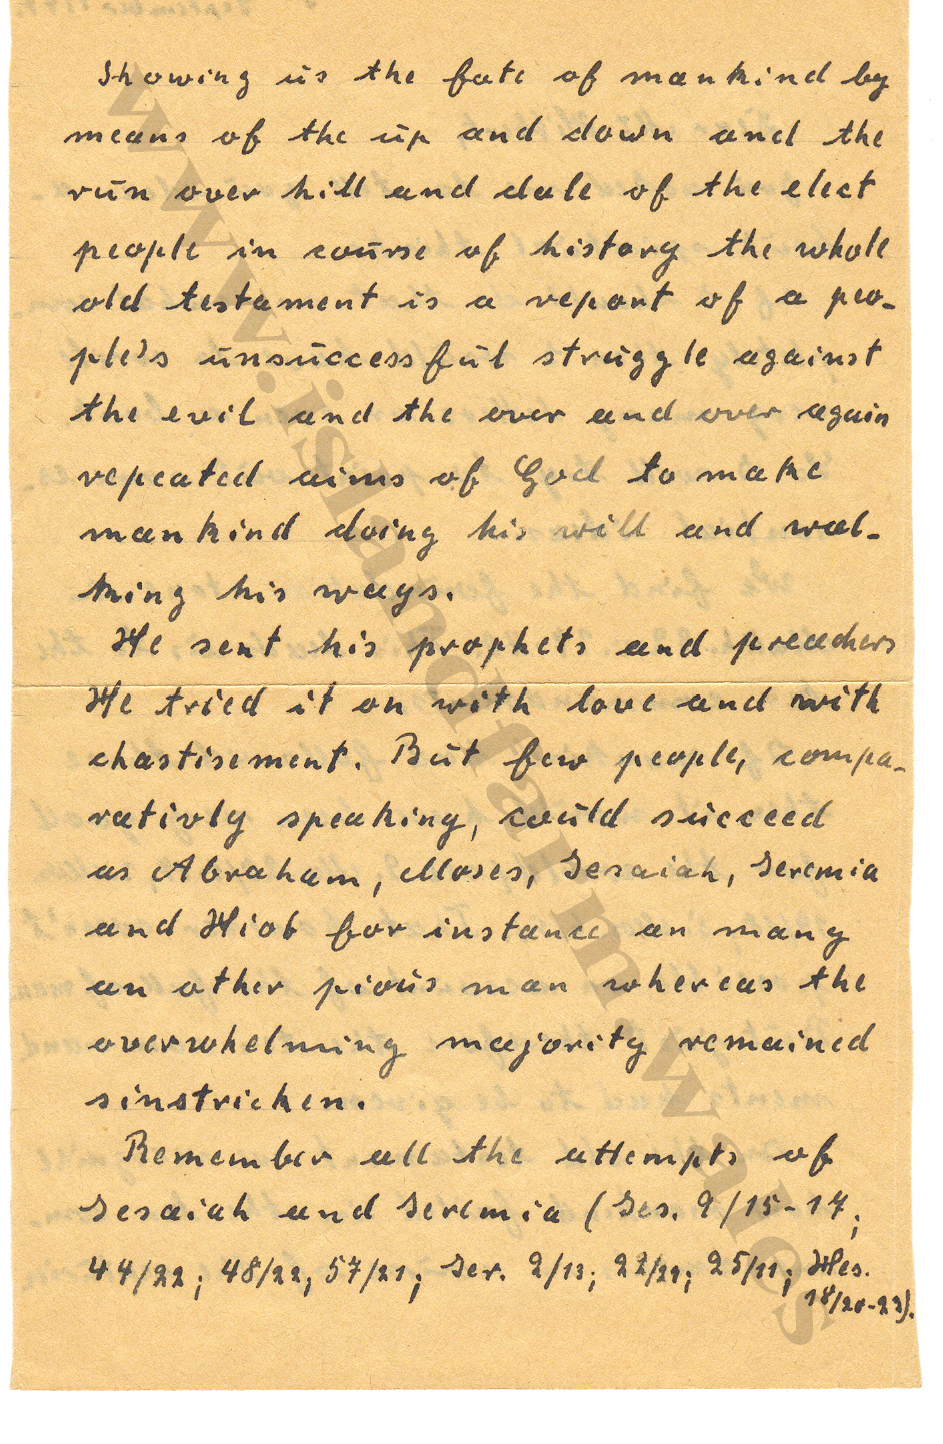 Showing us the fate of mankind by
means of the up and down and the
run over hill and dale of the elect
people in course of history the whole
old testament is a report of a peo-
ple's unsuccessful struggle against
the evil and the over and over again
repeated aims of God to make
mankind doing his will and wal-
king his ways.
He sent his prophets and preachers
He tried it on with love and with
chastisement. But few people, compa-
rativly speaking, could succeed
as Abraham, Moses, Jesaiah, Jeremia
and Hiob for instance an many
an other pious man whereas the
overwhelming majority remained
sinstricken.
Remember all the attempts of
Jesaiah and Jeremia (Jes. 9/15-17;
44/22; 48/22; 57/21; Jer. 2/13; 22/29; 25/11; Hes.
www.islandfarm.wales